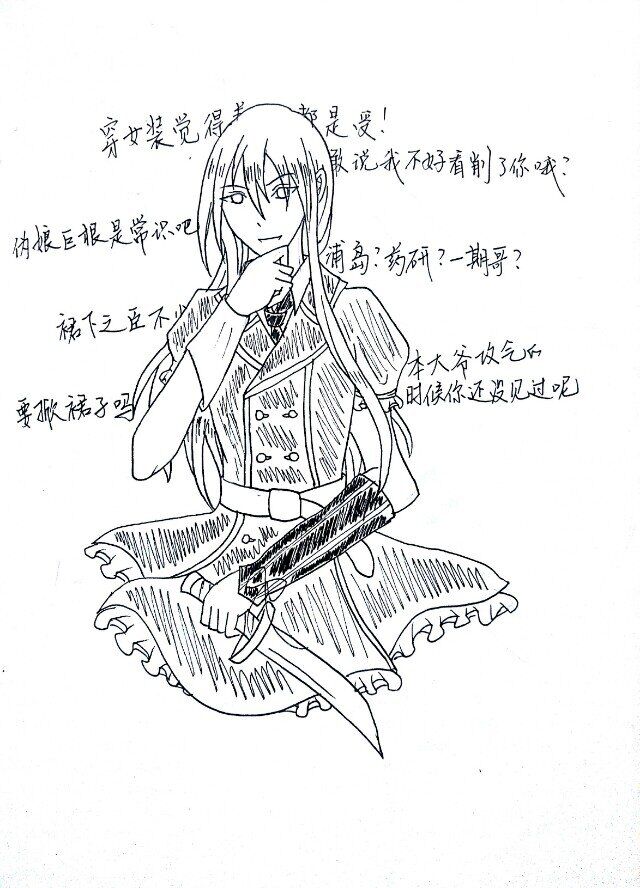 穿女装觉得 都是受！
敢说我不好看削了你哦？
伪娘巨根是常识吧
浦岛？药研？一期哥？
裙下之臣不
本大爷攻气的
时候你还没见过呢
要掀裙子吗